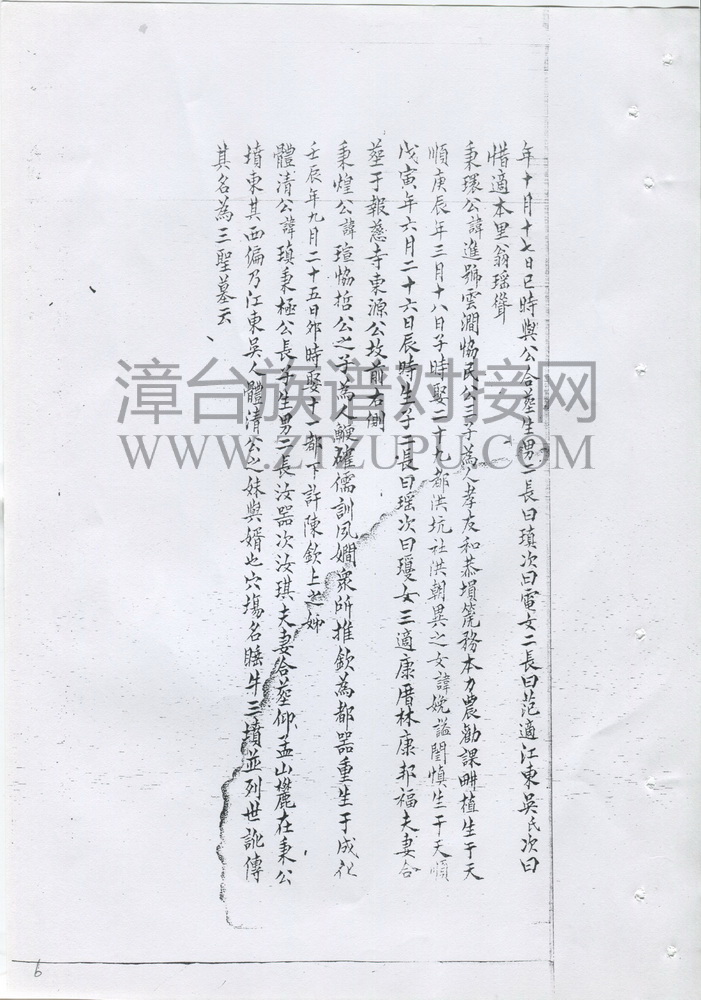 年十月十七日巳時與公合塟生男二長曰瑱次曰電女二長曰范適江東吳氏次曰
惜適本里翁瑶聳
秉環公諱進號雲澗恊民公三子為人孝友和恭塤箎務本力農勸課畊植生于天
順庚辰年三月十八日子時娶二十九都洪坑社洪朝異之女諱娩謚閨慎生于天順
戊寅年六月二十六日辰時生子二長曰瑶次曰瓊女三適康厝林康邦福夫妻合
塟于報慈寺東源公坟前右側
秉煌公諱瑄恊哲公之子為人鯁確儒訓夙嫺衆所推欽為都器重生于成化
壬辰年九月二十五日夘時娶十一都下許陳欽上之姊
體清公諱瑱秉極公長子生男二長汝器次汝琪夫妻合塟仰盂山麓在秉公
墳東其西偏乃江東吳人體清公之妹與婿也穴塲名睡牛三墳並列世訛傳
其名為三聖墓云
漳台族谱对接网
WWW.ZTZUPU.COM
6